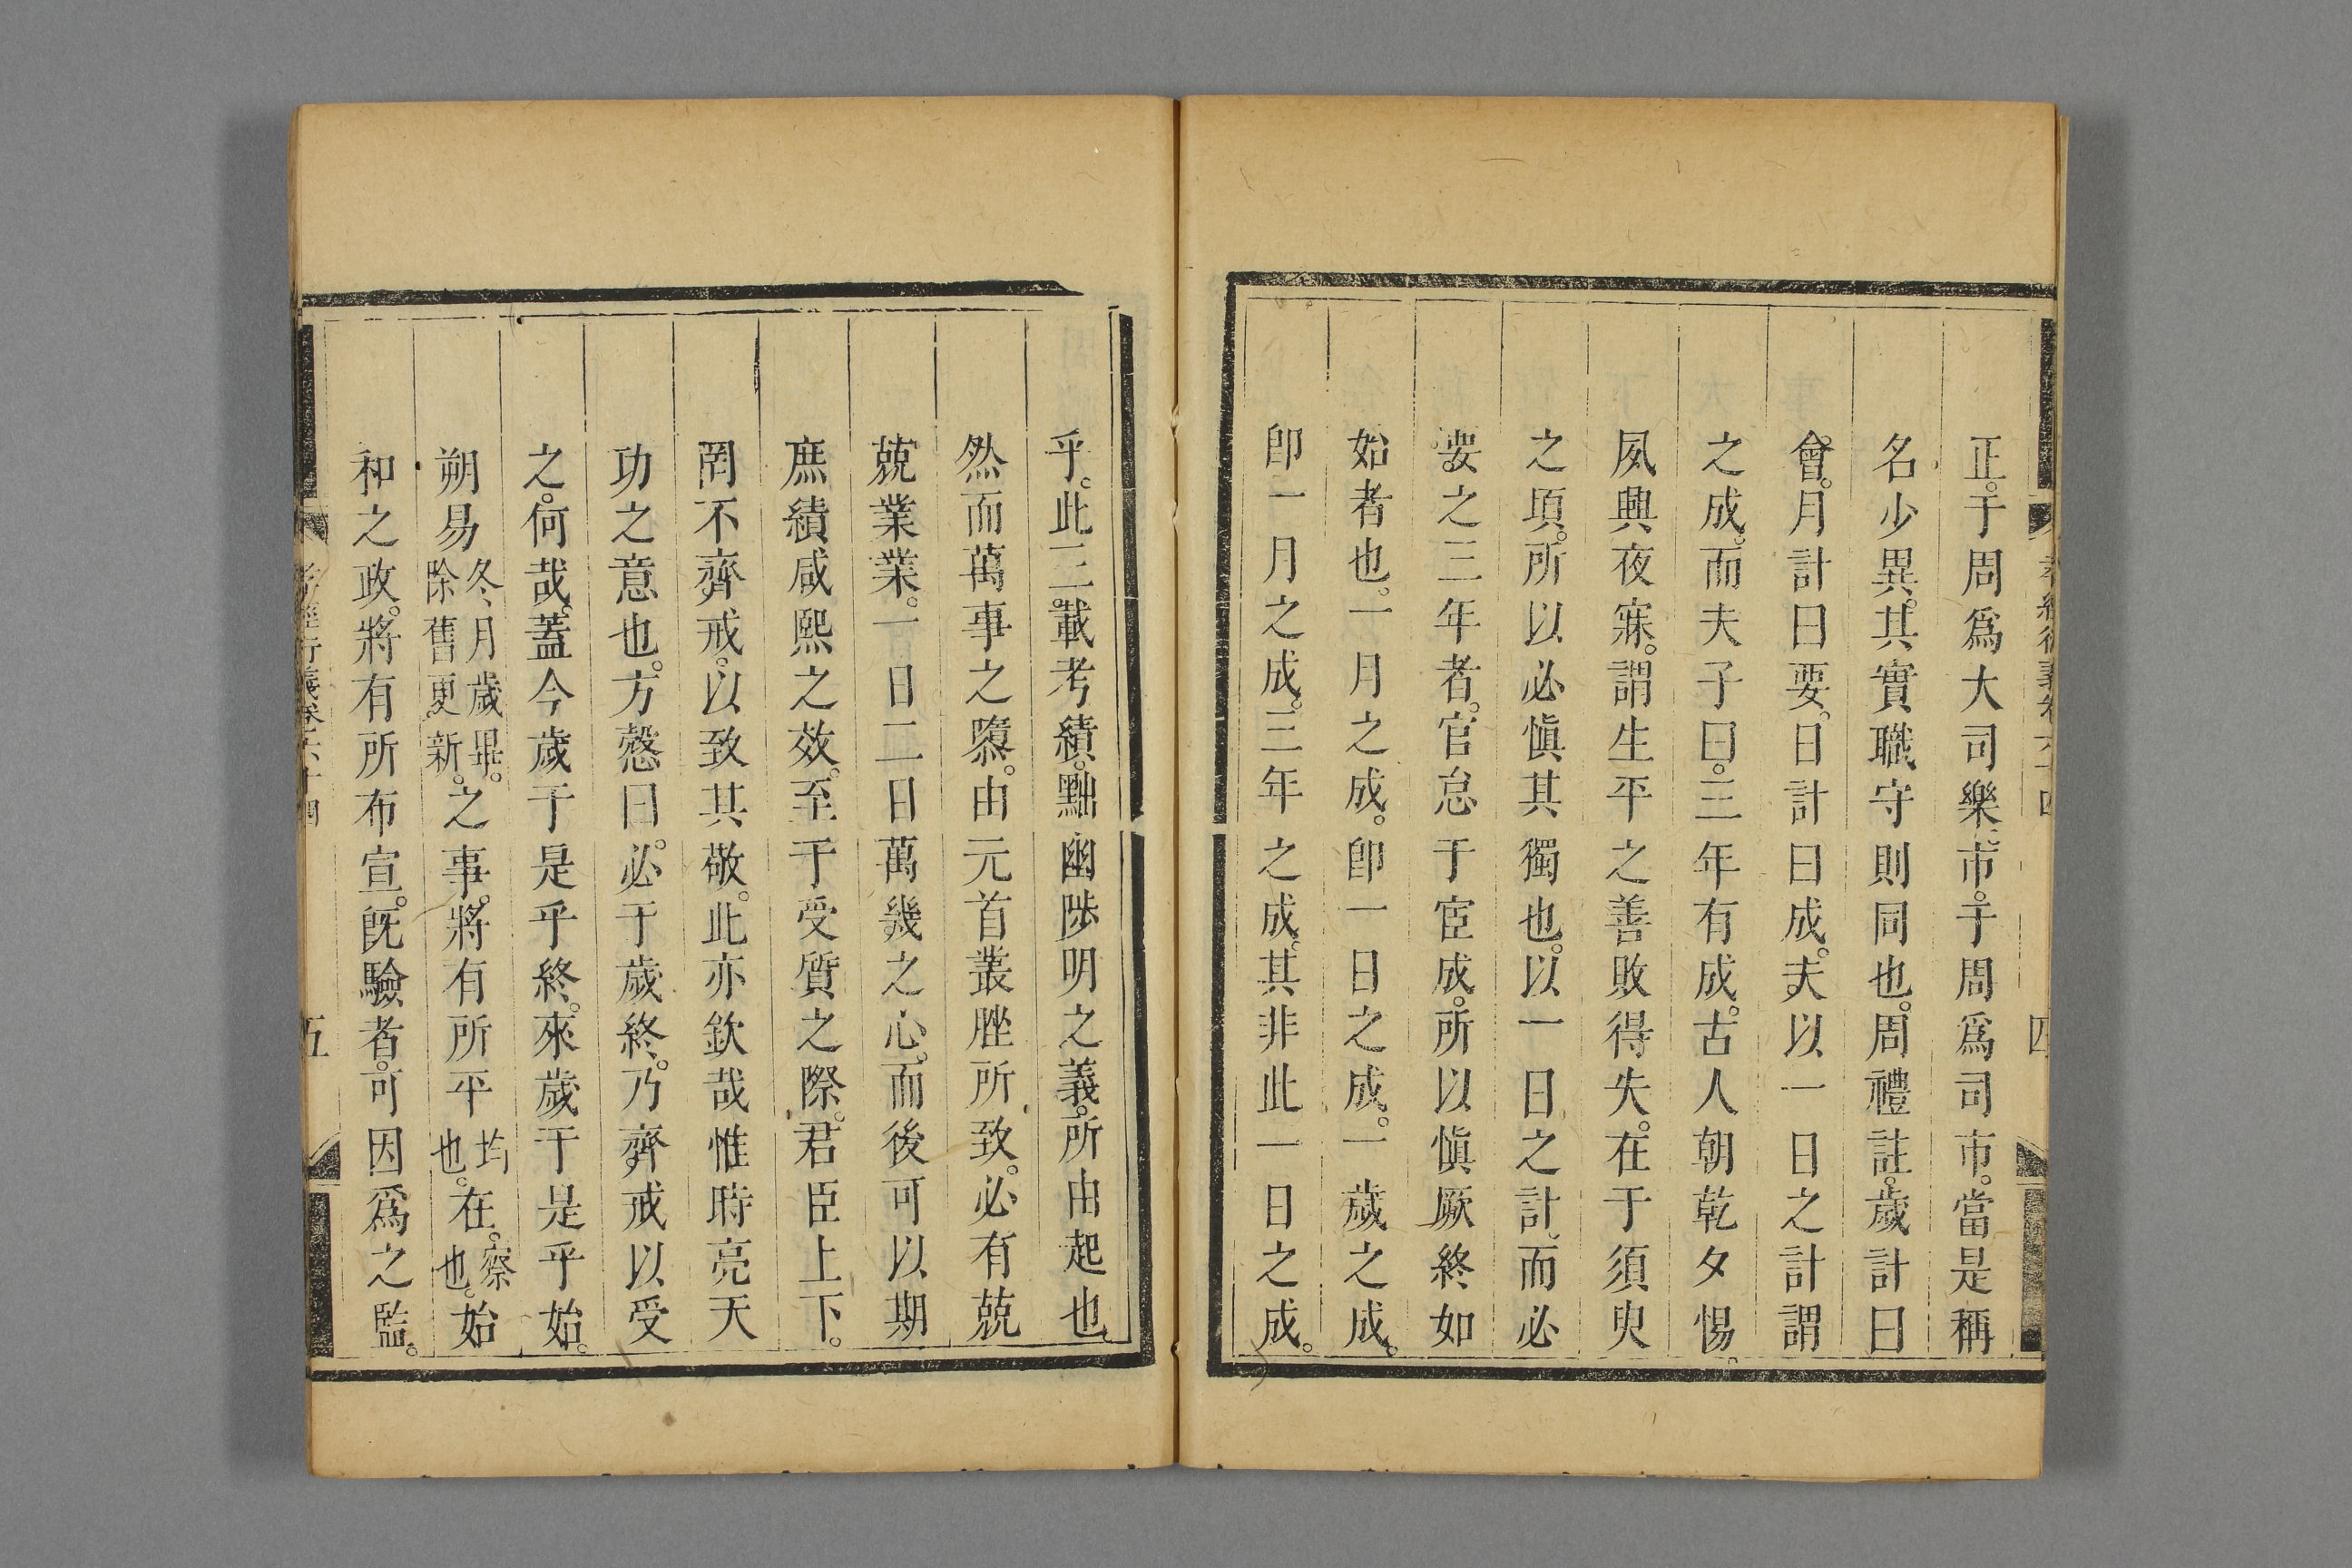 正。于周爲大司樂、市。于周爲司市。當是稱
名少異。其實職守則同也。周禮註。歲計曰
會。月計曰要。日計曰成。夫以一日之計謂
之成。而夫子曰。三年有成。古人朝乾夕惕。
夙興夜寐。謂生平之善敗得失。在于須臾
之頃。所以必慎其獨也。以一日之計。而必
要之三年者。官怠于宦成。所以慎厥終如
始者也。一月之成。卽一日之成。一歲之成。
卽一月之成。三年之成。其非此一日之成。
四
乎。此三載考績。黜幽陟明之義。所由起也。
然而萬事之隳。由元首叢脞所致。必有兢
兢業業。一日二日萬幾之心。而後可以期
庶績咸熙之效。至于受質之際。君臣上下。
罔不齊戒。以致其敬。此亦欽哉惟時亮天
功之意也。方慤曰。必于歲終。乃齊戒以受
之。何哉。蓋今歲于是乎終。來歲于是乎始。
朔易冬月歲畢。除舊更新。之事。將有所平均也。在。察也。始
和之政。將有所布宣。旣驗者。可因爲之監。
孝經衍義卷六十四
五